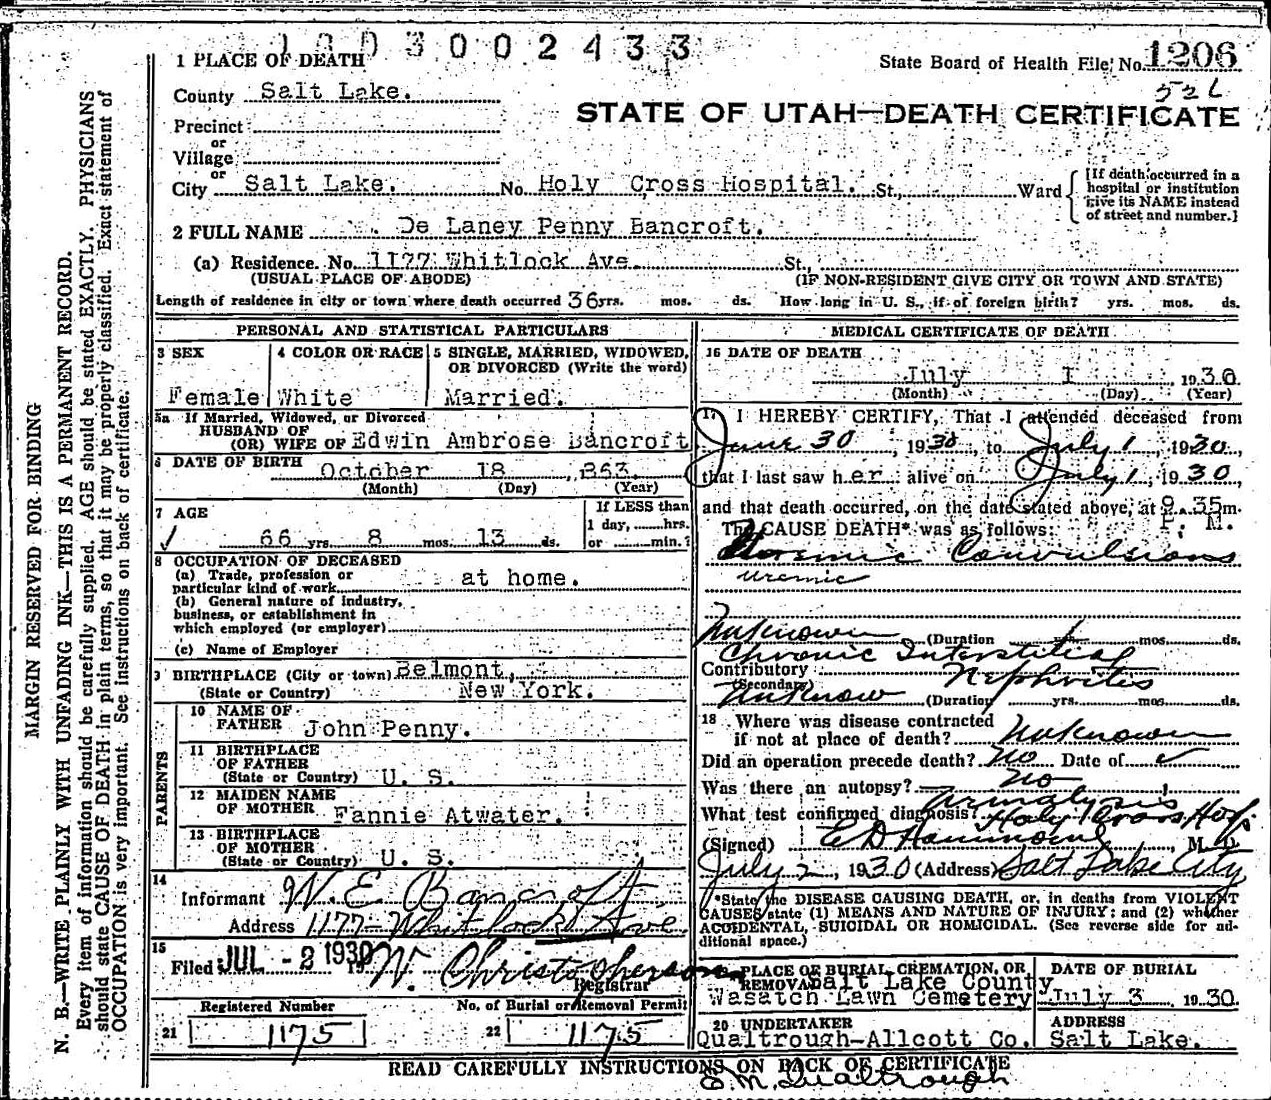 1003002433
1 PLACE OF DEATH
State Board of Health File No. 1206
526
County Salt Lake.
STATE OF UTAH—DEATH CERTIFICATE
Precinct
or
Village
or
City Salt Lake. No. Holy Cross Hospital. St., Ward
[If death occurred in a hospital or institution give its NAME instead of street and number.]
2 FULL NAME De Laney Penny Bancroft.
(a) Residence. No. 1177 Whitlock Ave. St.,
(USUAL PLACE OF ABODE) (IF NON-RESIDENT GIVE CITY OR TOWN AND STATE)
Length of residence in city or town where death occurred 36 yrs. mos. ds. How long in U. S., if of foreign birth? yrs. mos. ds.
PERSONAL AND STATISTICAL PARTICULARS
3 SEX
Female
4 COLOR OR RACE
White
5 SINGLE, MARRIED, WIDOWED,
OR DIVORCED (Write the word)
Married.
5a If Married, Widowed, or Divorced
HUSBAND OF
(OR) WIFE OF Edwin Ambrose Bancroft
6 DATE OF BIRTH October 18, 1863.
(Month) (Day) (Year)
7 AGE
66 yrs. 8 mos. 13 ds.
If LESS than
1 day, hrs.
or min.?
8 OCCUPATION OF DECEASED
(a) Trade, profession or
particular kind of work at home.
(b) General nature of industry,
business, or establishment in
which employed (or employer)
(c) Name of Employer
9 BIRTHPLACE (City or town) Belmont,
(State or Country) New York.
PARENTS
10 NAME OF
FATHER John Penny.
11 BIRTHPLACE
OF FATHER
(State or Country) U. S.
12 MAIDEN NAME
OF MOTHER Fannie Atwater.
13 BIRTHPLACE
OF MOTHER
(State or Country) U. S.
14
Informant W. E. Bancroft
Address 1177 Whitlock Ave.
15
Filed JUL - 2 1930 19 W. Christopherson
Registrar
Registered Number
21 1175
No. of Burial or Removal Permit
22 1175
MEDICAL CERTIFICATE OF DEATH
16 DATE OF DEATH
July 1, 1930.
(Month) (Day) (Year)
17 I HEREBY CERTIFY, That I attended deceased from
June 30, 1930, to July 1, 1930,
that I last saw her alive on July 1, 1930
and that death occurred, on the date stated above, at 9.35 m.
P. M.
The CAUSE DEATH* was as follows:
Uremic Convulsions
uremic
Unknown (Duration mos. ds.
Chronic Interstitial
Contributory Nephritis
(Secondary)
Unknow (Duration yrs. mos. ds.
18 Where was disease contracted
if not at place of death? Unknown
Did an operation precede death? No Date of
Was there an autopsy? No
What test confirmed diagnosis? Urinalysis
Holy Cross Hosp.
(Signed) E D Hammond, M. D.
July 2, 1930 (Address) Salt Lake City
*State the DISEASE CAUSING DEATH, or, in deaths from VIOLENT
CAUSES state (1) MEANS AND NATURE OF INJURY; and (2) whether
ACCIDENTAL, SUICIDAL OR HOMICIDAL. (See reverse side for additional space.)
19 PLACE OF BURIAL, CREMATION, OR
REMOVAL Salt Lake County
Wasatch Lawn Cemetery
DATE OF BURIAL
July 3 1930.
20 UNDERTAKER
Qualtrough-Allcott Co.
ADDRESS
Salt Lake.
READ CAREFULLY INSTRUCTIONS ON BACK OF CERTIFICATE
Qualtrough
MARGIN RESERVED FOR BINDING
N. B.—WRITE PLAINLY WITH UNFADING INK—THIS IS A PERMANENT RECORD.
Every item of information should be carefully supplied. AGE should be stated EXACTLY. PHYSICIANS
should state CAUSE OF DEATH in plain terms, so that it may be properly classified. Exact statement of
OCCUPATION is very important. See instructions on back of certificate.